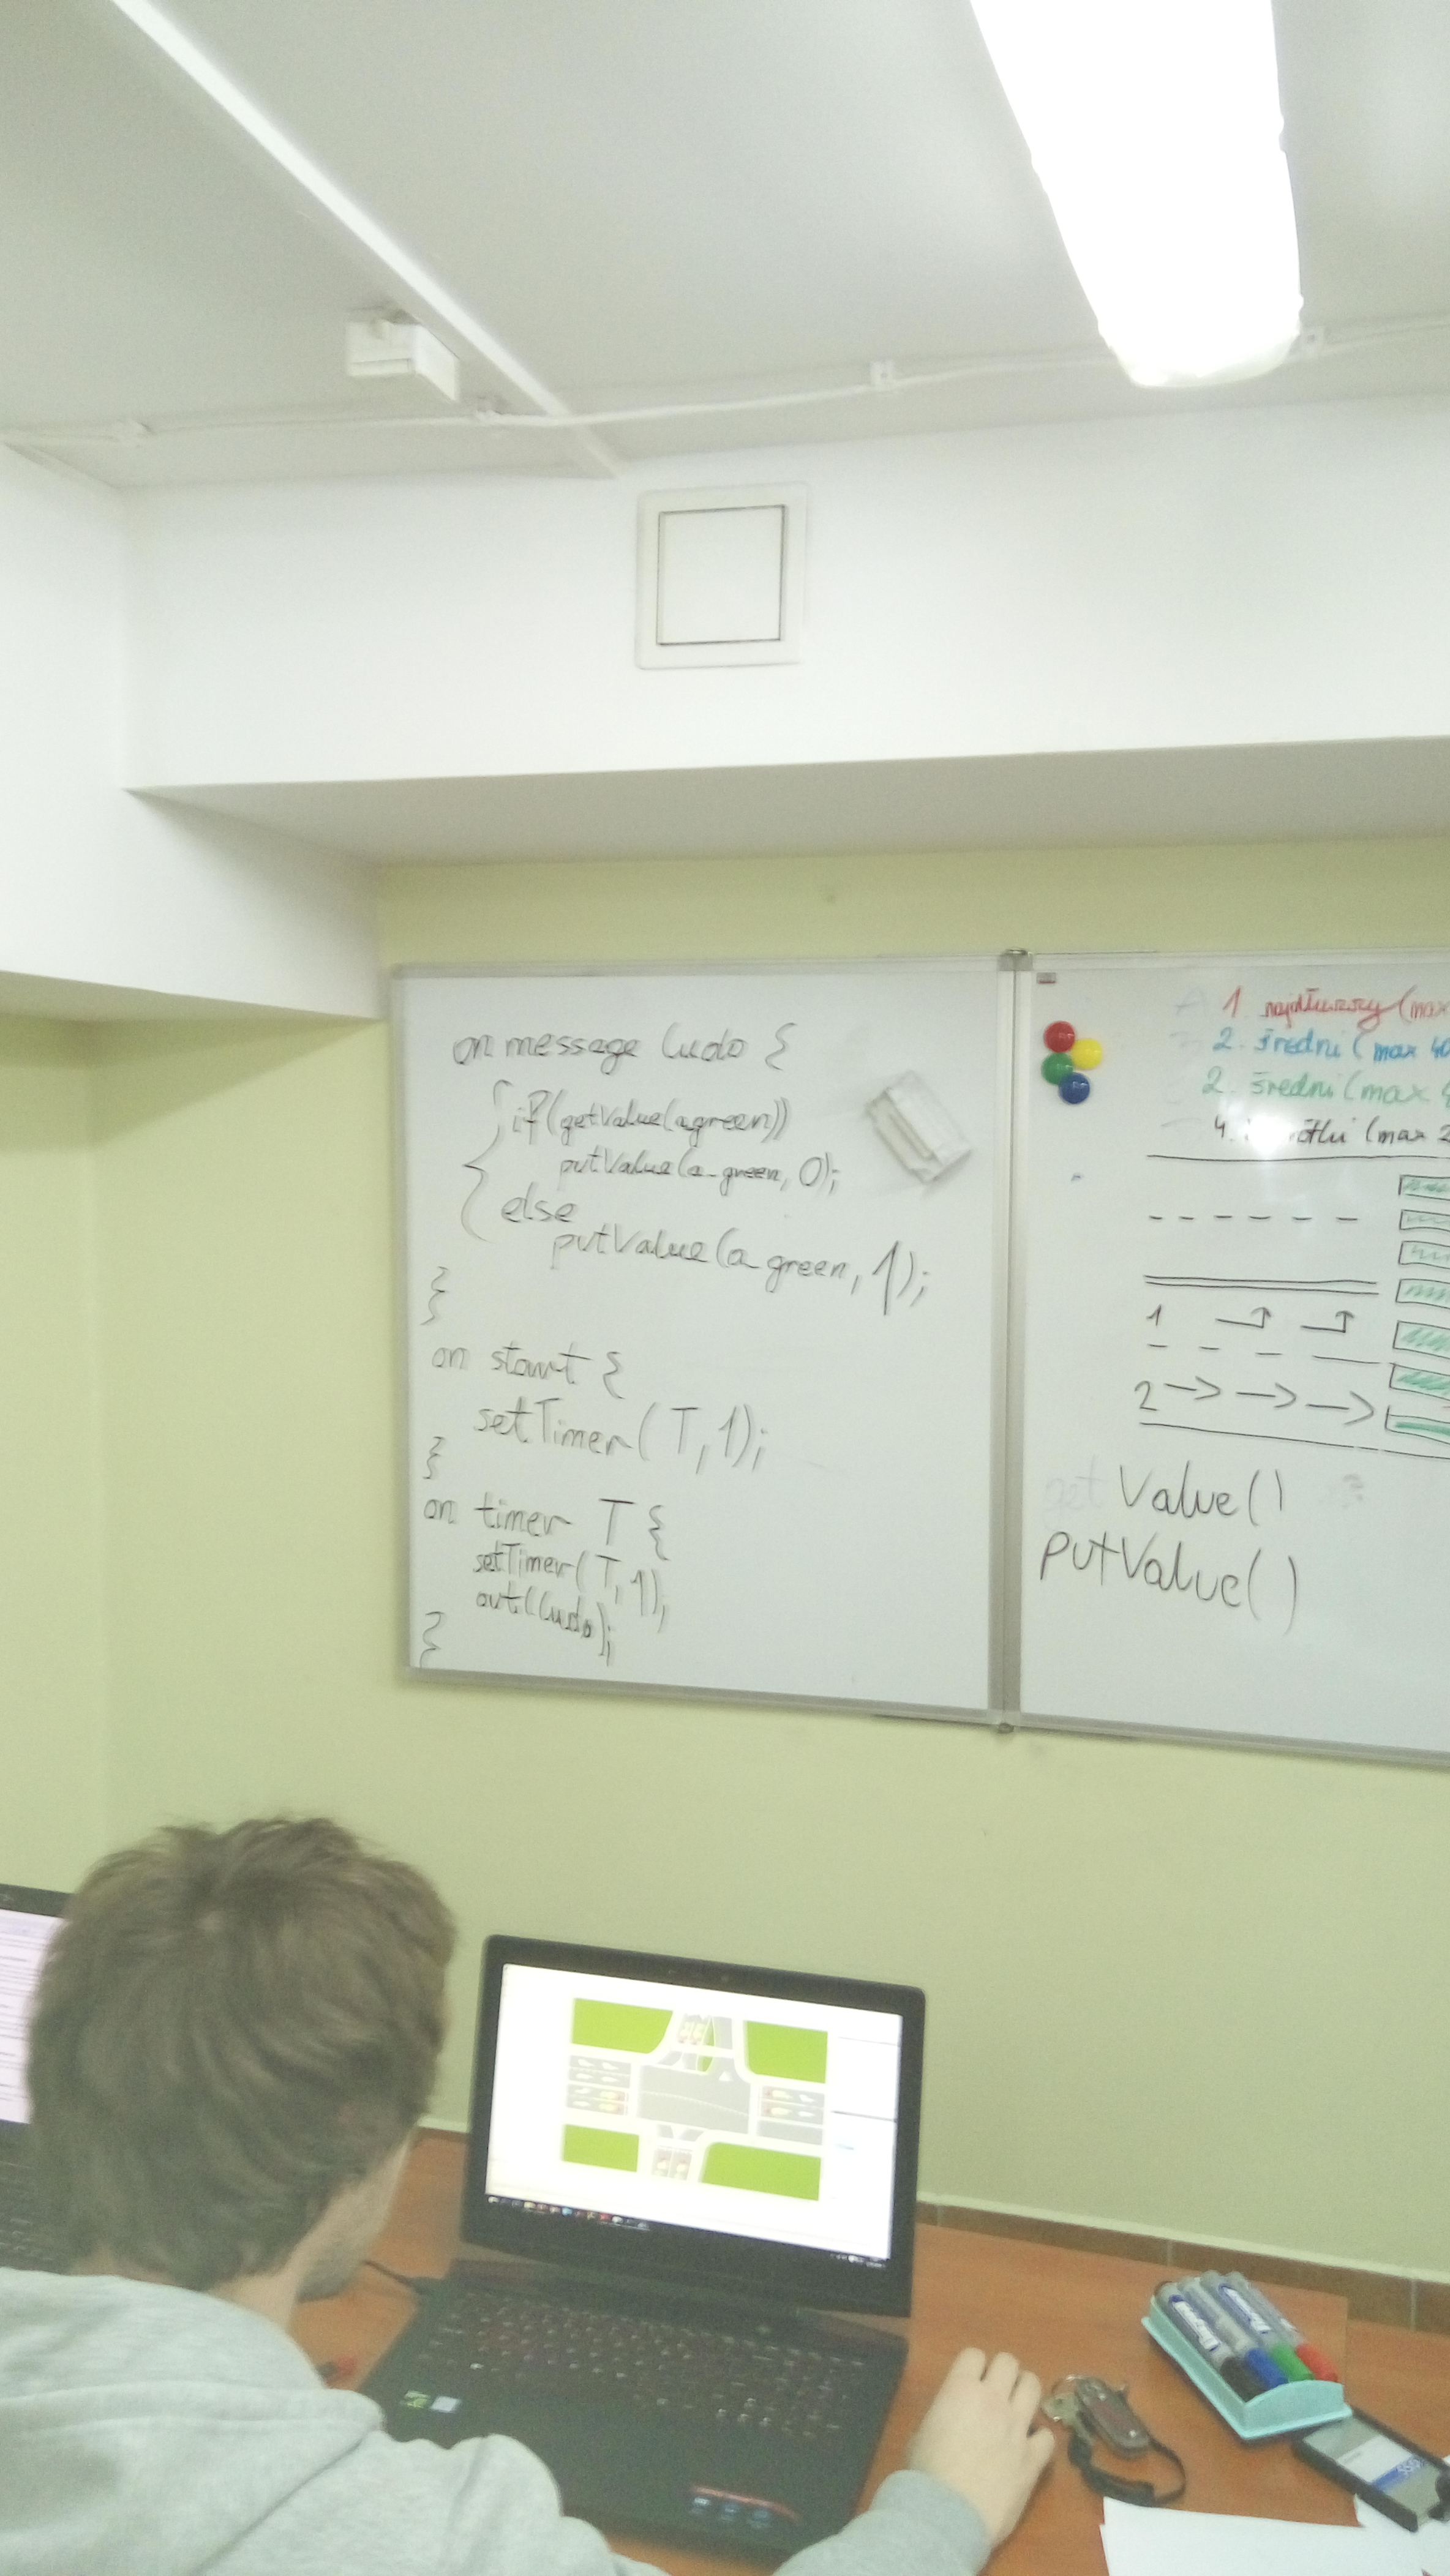 on message Cudo {
if(getValue(agreen))
putValue(a_green, 0);
else
putValue(a green, 1);
}
on start {
setTimer(T,1);
}
on timer T {
setTimer(T,1);
out(Cudo);
}
1. najdłuższy (max
2. średni (max 40
2. średni (max 4
4. (max 2
1
2
getValue()
putValue()